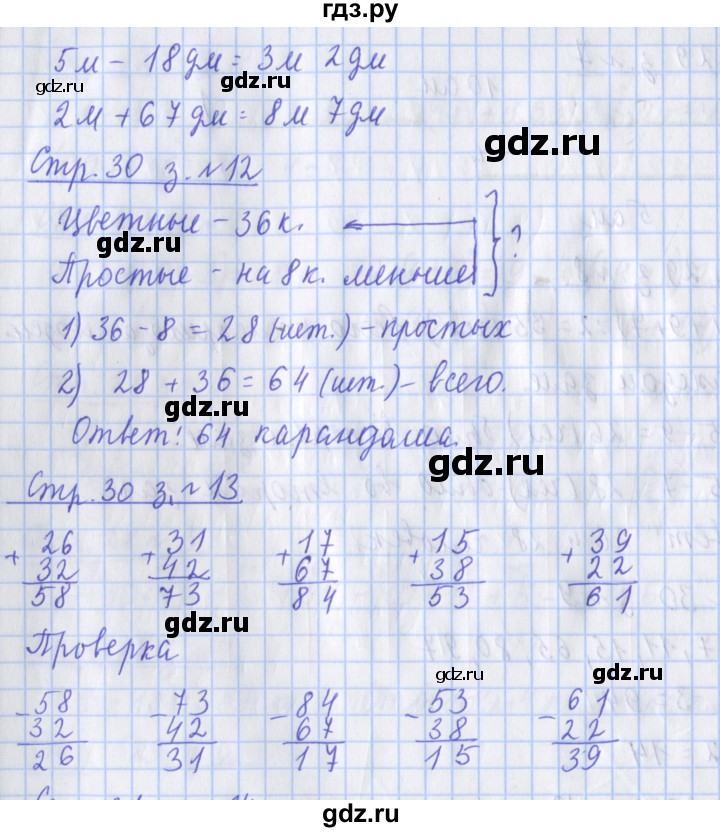 гдз.ру
5м - 18дм = 3м 2дм
gdz.ru
2м + 67дм = 8м 7дм
gdz.ru
Стр. 30 з. №12
Цветные - 36к.
gdz.ru
?
Простые - на 8к. меньше
1) 36 - 8 = 28 (шт.) - простых
2) 28 + 36 = 64 (шт.) - всего.
gdz.ru
Ответ: 64 карандаша.
gdz.ru
Стр. 30 з. №13
26 31 17 15 39
+ 32 + 42 + 67 + 38 + 22
58 73 84 53 61
gdz.ru gdz.ru gdz.ru
gdz.ru
Проверка
gdz.ru gdz.ru
58 73 84 53 61
- 32 - 42 - 67 - 38 - 22
26 31 17 15 39
gdz.ru
gdz.ru